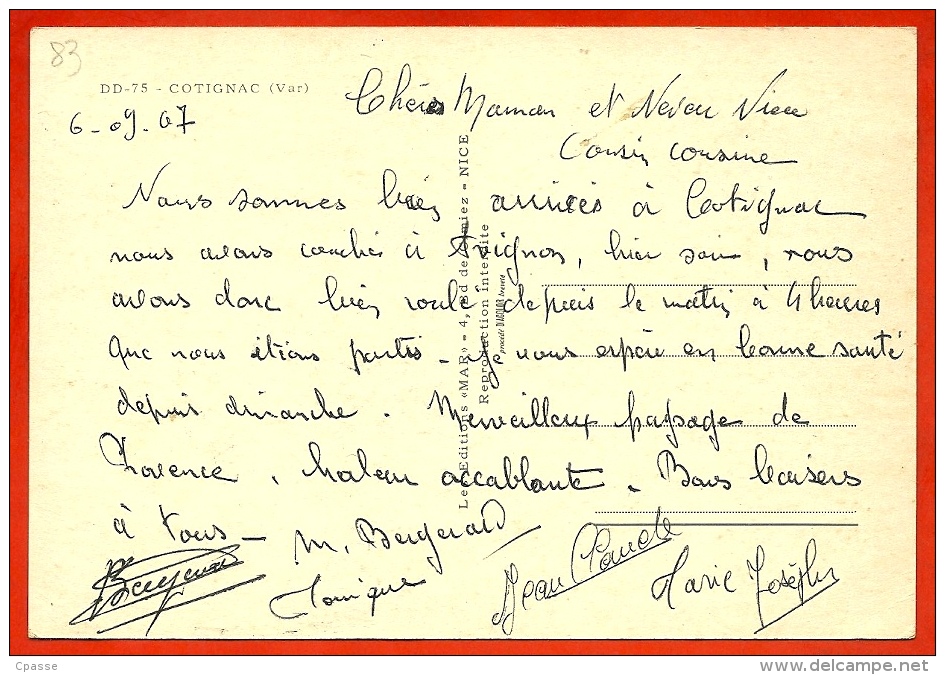 83
DD-75 - COTIGNAC (Var)
6-09-67
Chère Maman et Neveu Nièce
Cousin cousine
Nous sommes bien arrivés à Cotignac
nous avons couchés à Avignon, hier soir, nous
avons donc bien roulé depuis le matin à 4 heures
que nous étions partis - Je vous espère en bonne santé
depuis dimanche. Merveilleux paysage de
Provence, chaleur accablante. Bons baisers
à tous - M. Bergerard
Monique
Jean Claude
Marie Josèphe
Les Editions «MAR» - 4, Bd de Cimiez - NICE
Reproduction Interdite
procédé D'AQUILOR breveté
Cpasse
DELCAMPE.net